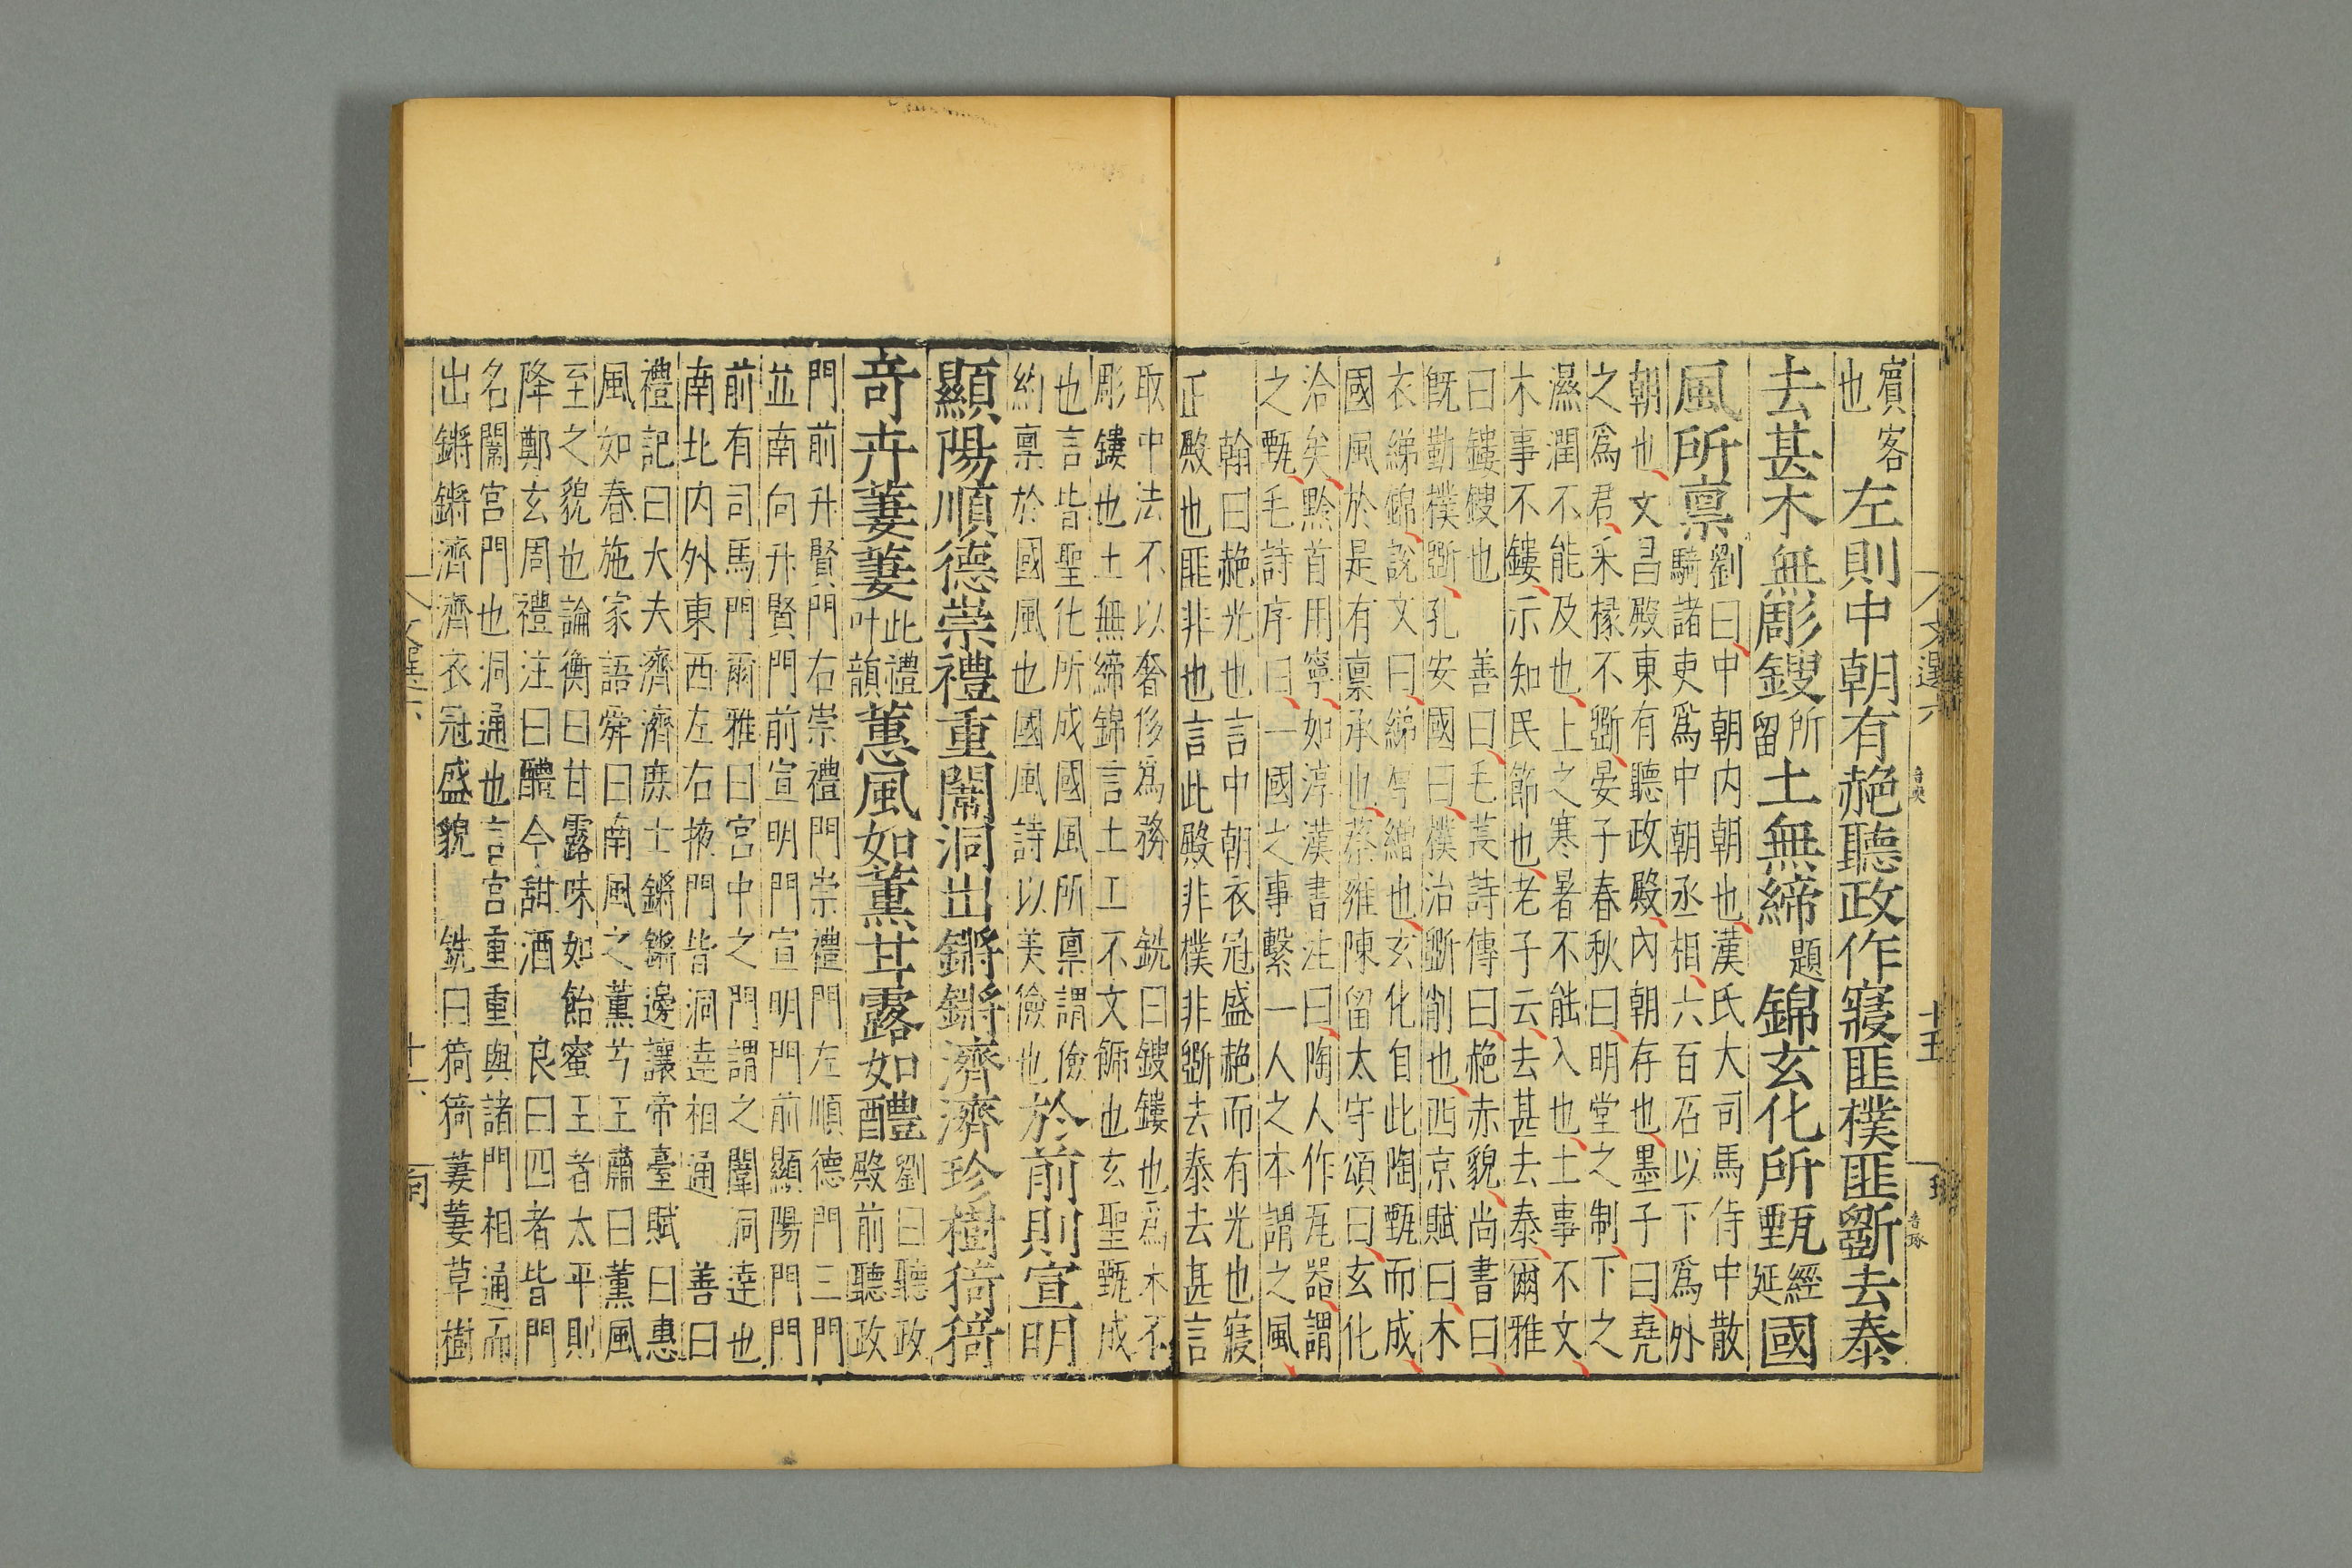 賓客
也
左則中朝有赩聽政作寢匪樸匪斲去泰
去甚木無彫鎪
所
留
土無綈
題
錦玄化所甄
經
延
國
風所禀
劉曰中朝内朝也漢氏大司馬侍中散
騎諸吏爲中朝丞相六百石以下爲外
朝也文昌殿東有聽政殿内朝存也墨子曰堯
之爲君采椽不斲晏子春秋曰明堂之制下之
濕潤不能及也上之寒暑不能入也土事不文
木事不鏤示知民節也老子云去甚去泰爾雅
曰鏤鎪也
善曰毛萇詩傳曰赩赤貌尚書曰
既勤樸斲孔安國曰樸治斲削也西京賦曰木
衣綈錦說文曰綈厚繒也玄化自此陶甄而成
國風於是有禀承也蔡雍陳留太守頌曰玄化
洽矣黔首用寧如淳漢書注曰陶人作瓦器謂
之甄毛詩序曰一國之事繫一人之本謂之風
翰曰赩光也言中朝衣冠盛赩而有光也寢
正殿也匪非也言此殿非樸非斲去泰去甚言
取中法不以奢侈爲務
銑曰鎪鏤也爲木不
彫鏤也土無綈錦言土工不文餙也玄聖甄成
也言皆聖化所成國風所禀謂儉
約禀於國風也國風詩以美儉也
於前則宣明
顯陽順德崇禮重闈洞出鏘鏘濟濟珍樹猗猗
奇卉萋萋
此禮
叶韻
蕙風如薫甘露如醴
劉曰聽政
殿前聽政
門前升賢門右崇禮門崇禮門左順德門三門
並南向升賢門前宣明門宣明門前顯陽門門
前有司馬門爾雅曰宮中之門謂之闈洞達也
南北内外東西左右掖門皆洞達相通
善曰
禮記曰大夫濟濟庶士鏘鏘邊讓帝臺賦曰惠
風如春施家語舜曰南風之薫兮王肅曰薫風
至之貌也論衡曰甘露味如飴蜜王者太平則
降鄭玄周禮注曰醴今甜酒
良曰四者皆門
名闈宮門也洞通也言宮重重與諸門相通而
出鏘鏘濟濟衣冠盛貌
銑曰猗猗萋萋草樹
文選六
十五
音琢